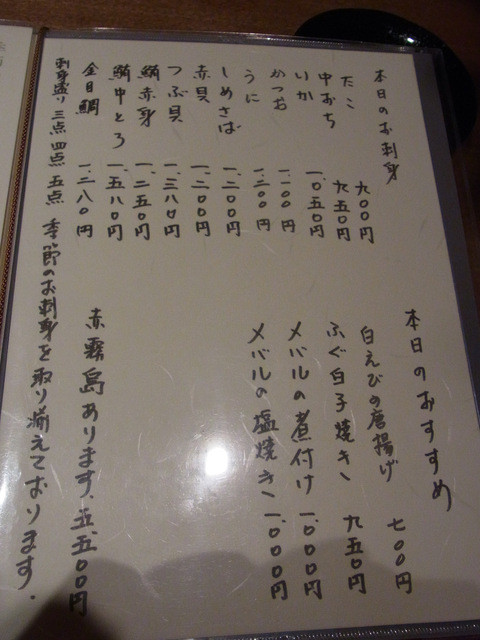 本日のお刺身
たこ 九〇〇円
中おち 九五〇円
いか 一、〇五〇円
かつお 一、一〇〇円
うに 一、二〇〇円
しめさば 一、二〇〇円
赤貝 一、二〇〇円
つぶ貝 一、三八〇円
鮪赤身 一、二五〇円
鮪中とろ 一、五八〇円
金目鯛 一、二八〇円
本日のおすすめ
白えびの唐揚げ 七〇〇円
ふぐ白子焼き 九五〇円
メバルの煮付け 一、〇〇〇円
メバルの塩焼き 一、〇〇〇円
赤霧島あります、五、五〇〇円
刺身盛り 三点 四点 五点 季節のお刺身を取り揃えております。